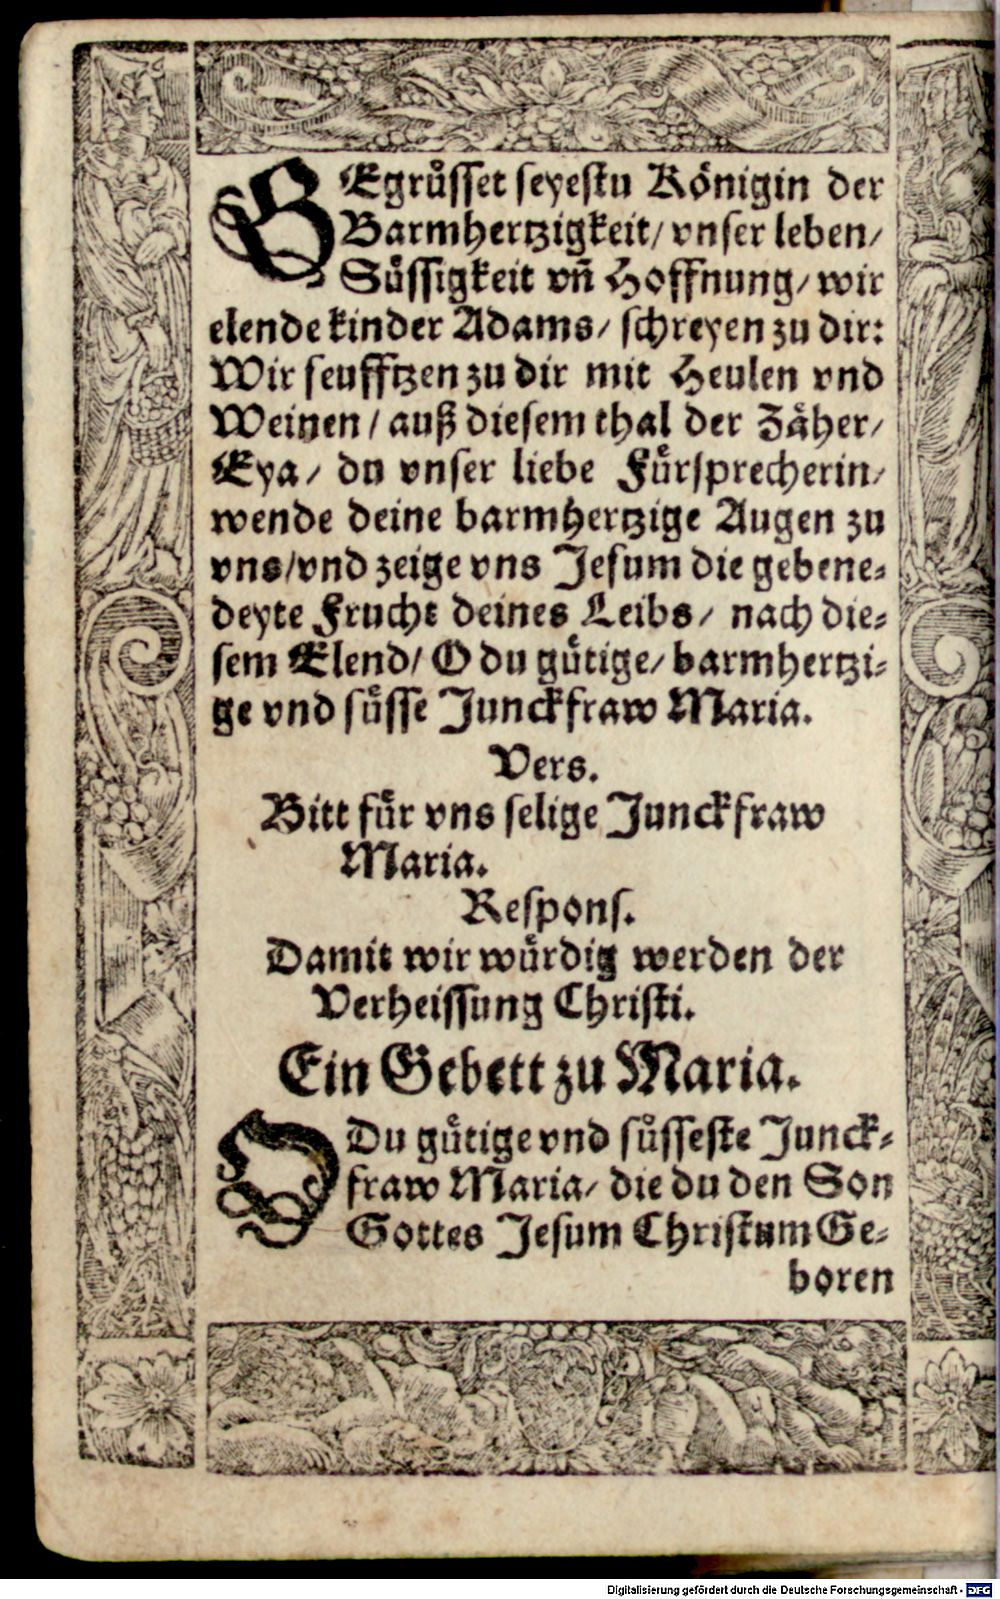 GEgrůsset seyestu Königin der
Barmhertzigkeit/ vnser leben/
Sůssigkeit vñ Hoffnung/ wir
elende kinder Adams/ schreyen zu dir:
Wir seufftzen zu dir mit Heulen vnd
Weinen/ auß diesem thal der Zäher/
Eya/ du vnser liebe Fürsprecherin/
wende deine barmhertzige Augen zu
vns/vnd zeige vns Jesum die gebene-
deyte Frucht deines Leibs/ nach die-
sem Elend/ O du gütige/ barmhertzi-
ge vnd süsse Junckfraw Maria.
Vers.
Bitt für vns selige Junckfraw
Maria.
Respons.
Damit wir würdig werden der
Verheissung Christi.
Ein Gebett zu Maria.
O Du gütige vnd sůsseste Junck-
fraw Maria/ die du den Son
Gottes Jesum Christum Ge-
boren
Digitalisierung gefördert durch die Deutsche Forschungsgemeinschaft - DFG